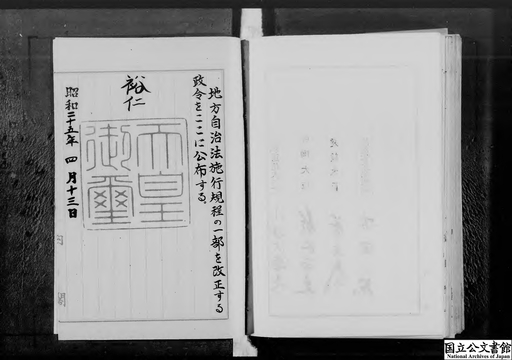 地方自治法施行規程の一部を改正する
政令をここに公布する。
裕仁
天皇
御璽
昭和二十五年四月十三日
国立公文書館
National Archives of Japan